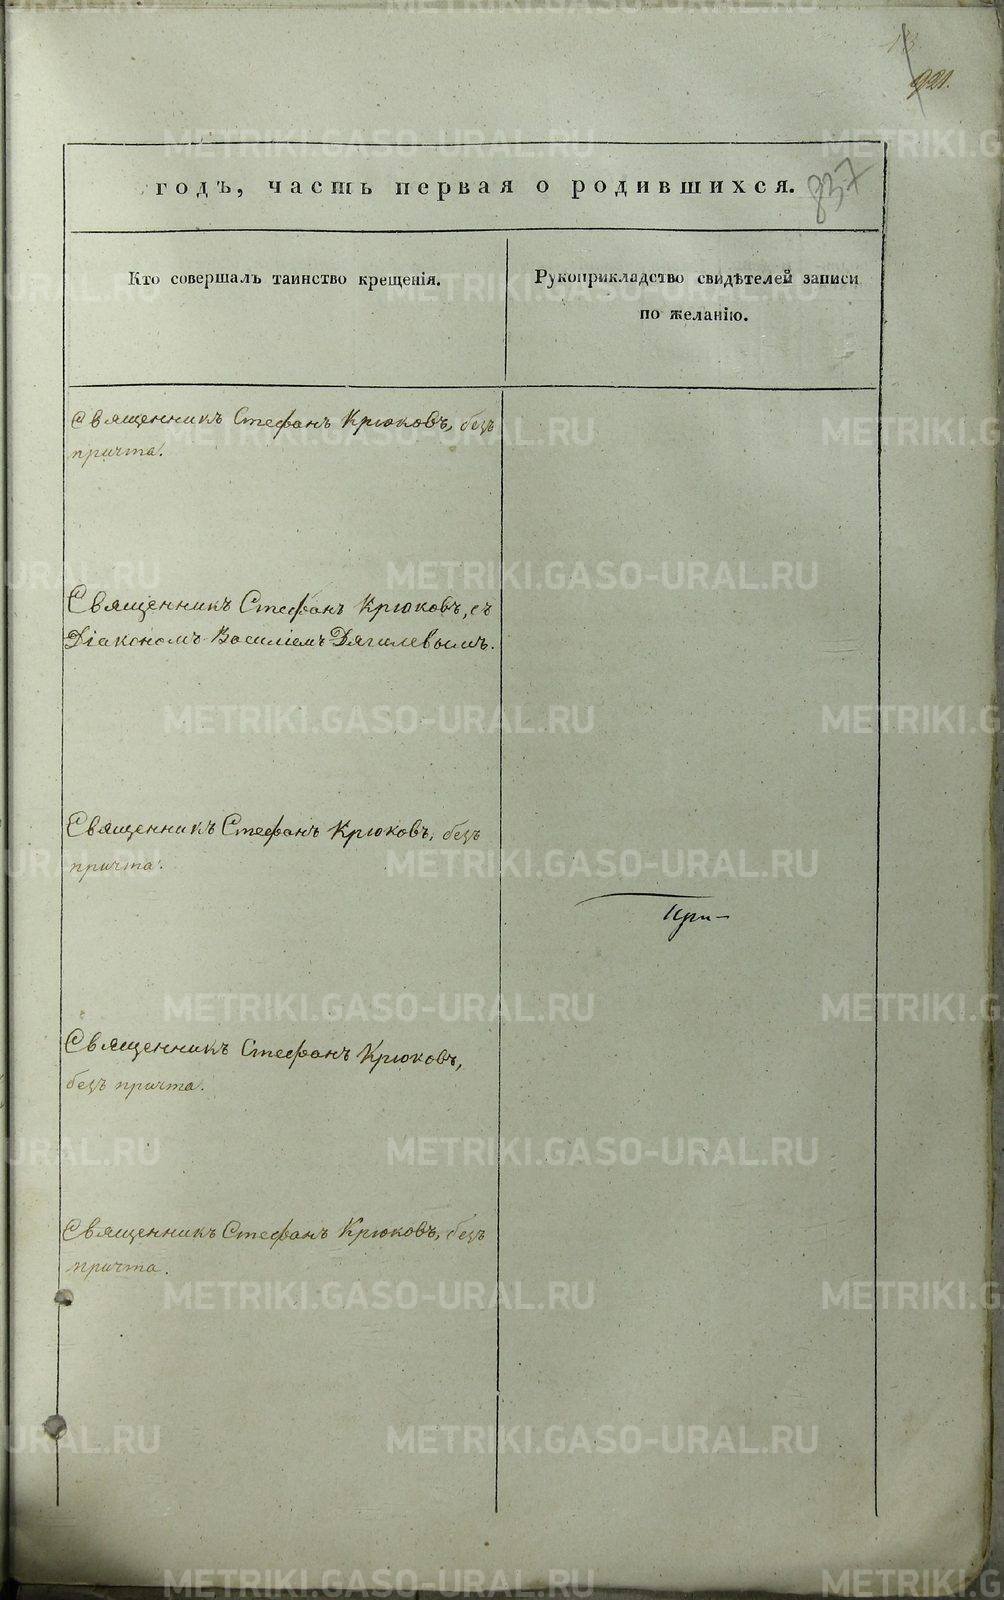 921.
837
годъ, часть первая о родившихся.
Кто совершалъ таинство крещенія.
Рукоприкладство свидѣтелей записи
по желанію.
Священникъ Стефанъ Крюковъ, безъ
причта.
Священникъ Стефанъ Крюковъ, съ
Діакономъ Василіемъ Дягилевымъ.
Священникъ Стефанъ Крюковъ, безъ
причта.
При-
Священникъ Стефанъ Крюковъ,
безъ причта.
Священникъ Стефанъ Крюковъ, безъ
причта.
METRIKI.GASO-URAL.RU